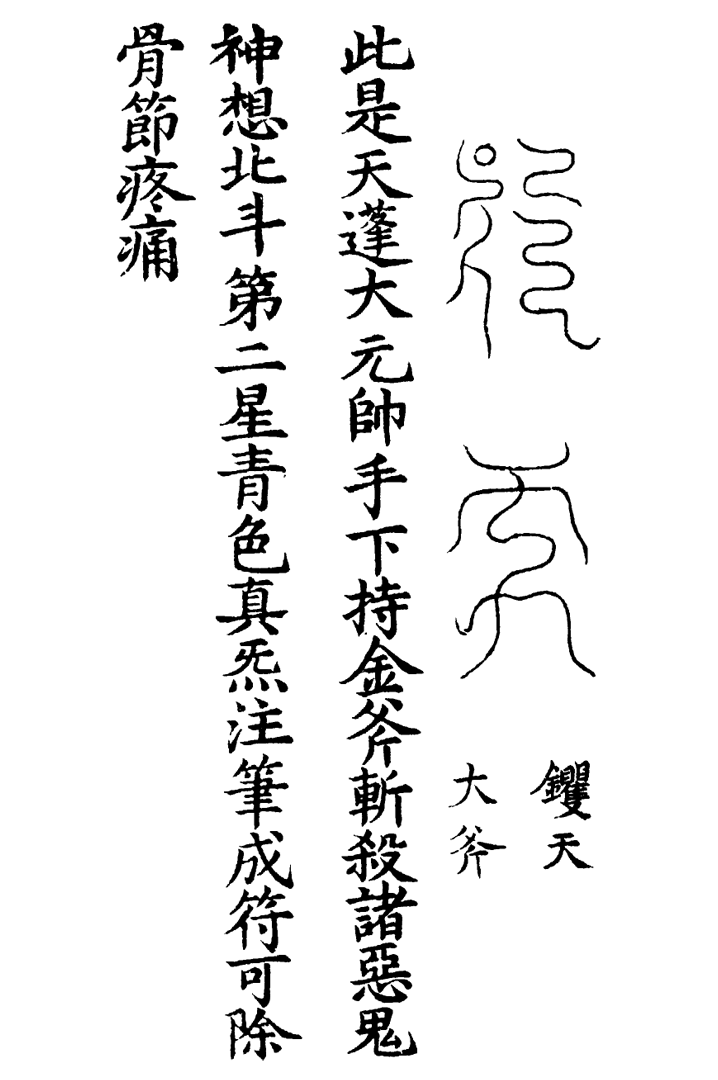 钁天
大斧
此是天蓬大元帥手下持金斧斬殺諸惡鬼
神想北斗第二星青色真炁注筆成符可除
骨節疼痛